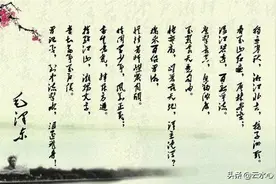 独立寒秋，湘江北去，橘子洲头。
看万山红遍，层林尽染；
漫江碧透，百舸争流。
鹰击长空，鱼翔浅底，
万类霜天竞自由。
怅寥廓，问苍茫大地，谁主沉浮？
携来百侣曾游，
忆往昔峥嵘岁月稠。
恰同学少年，风华正茂；
书生意气，挥斥方遒。
指点江山，激扬文字，
粪土当年万户侯。
曾记否，到中流击水，浪遏飞舟？
毛泽东
头条 @云水心